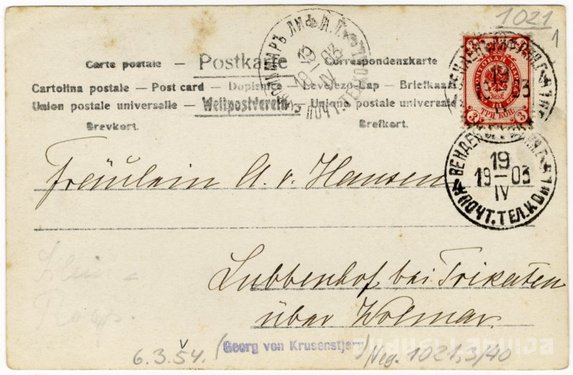 1021
1
Carte postale — Postkarte — Correspondenzkarte
Cartolina postale — Post card — Dopisnice — Levelezo-Lap — Briefkaart
Union postale universelle — Weltpostverein — Union postale universelle
Brevkort. Brefkort.
ВОЛЬМАРЪ ЛИФ
19
IV
ПОЧТ.
ТРИ КОП.
3 3
ВЕНДЕНЪ
19
19—03
IV
ПОЧТ. ТЕЛ. КОНТ.
Fräulein A. v. Hansen
Lubbenhof bei Trikaten
über Wolmar.
6.3.54. (Georg von Krusenstjern) Veg. 1021,3/40